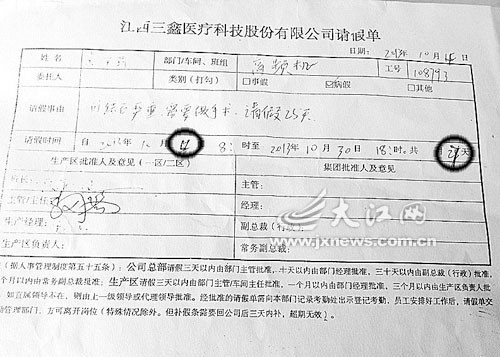 江西三鑫医疗科技股份有限公司请假单
日期: 2013 10
姓名 部门/车间、班组 高频机 工号 108793
委托人 类别(打勾) □事假 ☑病假 □其他
请假事由 需要做手术,请假 25天
请假时间 自 月 8: 时至 2013年 10月 30日 18:时。共 天
生产区批准人及意见(一区/二区) 集团批准人及意见
主管/主任: 主管:
生产经理: 经理:
生产区负责人: 副总裁(行政):
常务副总裁:
大江网
www.jxnews.com.cn
(据人事管理制度第五十五条):公司总部请假三天以内由部门主管批准,十天以内由部门经理批准,三十天以内由副总裁(行政)批准,
个月以内由常务副总裁批准;生产区请假三天以内由部门主管/车间主任批准,一个月以内由部门经理批准,三个月以内由生产区负责人批
如直属领导不在,则由上一级领导或代理领导批准。经批准的请假单需向本部门记录考勤处出示登记考勤,员工安排好工作后,请假单交
动管理部门,方可离开岗位(特殊情况除外。但补假条需要回公司后三天内补,超期无效)。